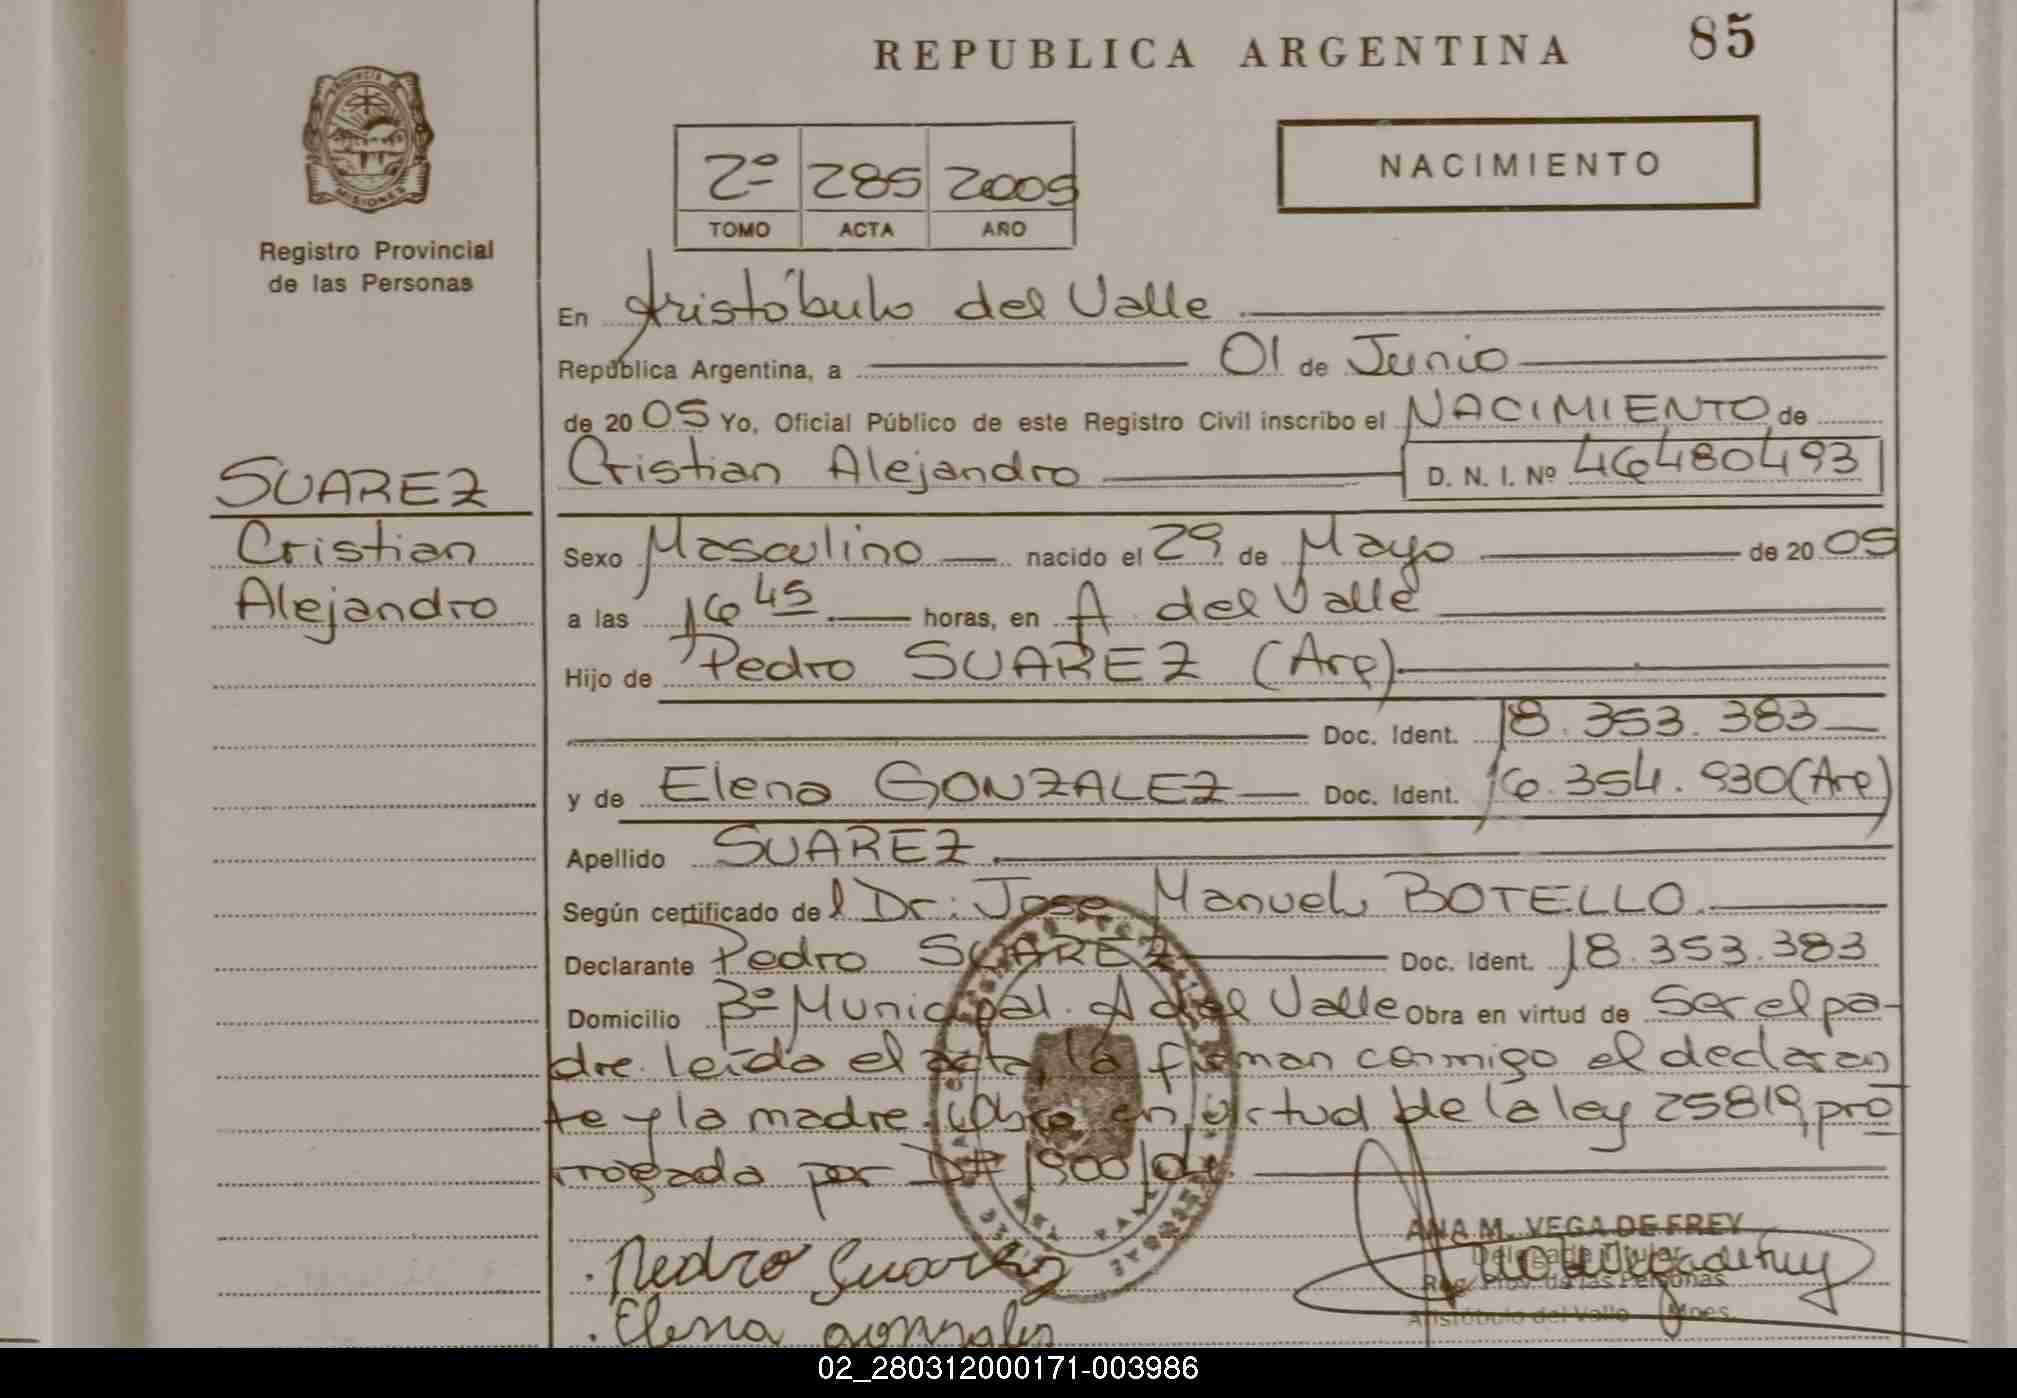 REPUBLICA ARGENTINA 85
PROVINCIA DE
MISIONES
Registro Provincial
de las Personas
2º 285 2005
TOMO ACTA AÑO
NACIMIENTO
En Aristóbulo del Valle
República Argentina, a 01 de Junio
de 2005 Yo, Oficial Público de este Registro Civil inscribo el NACIMIENTO de
Cristian Alejandro D. N. I. Nº 46480493
SUAREZ
Cristian
Alejandro
Sexo Masculino nacido el 29 de Mayo de 2005
a las 16 45 horas, en A. del Valle
Hijo de Pedro SUAREZ (Arg)
Doc. Ident. 18.353.383
y de Elena GONZALEZ Doc. Ident. 16.354.930 (Arg)
Apellido SUAREZ
Según certificado del Dr. Jose Manuel BOTELLO
Declarante Pedro SUAREZ Doc. Ident. 18.353.383
Domicilio Bº Municipal. A del Valle Obra en virtud de Ser el pa-
dre. Leída el acta, la firman conmigo el declaran
te y la madre. Obra en virtud de la ley 25819, pro
rrogada por 1900/04.
Pedro Suarez
Elena gonzales
ANA M. VEGA DE FREY
Delegada Titular
Reg. Prov. de las Personas
Aristóbulo del Valle Mnes.
02_280312000171-003986